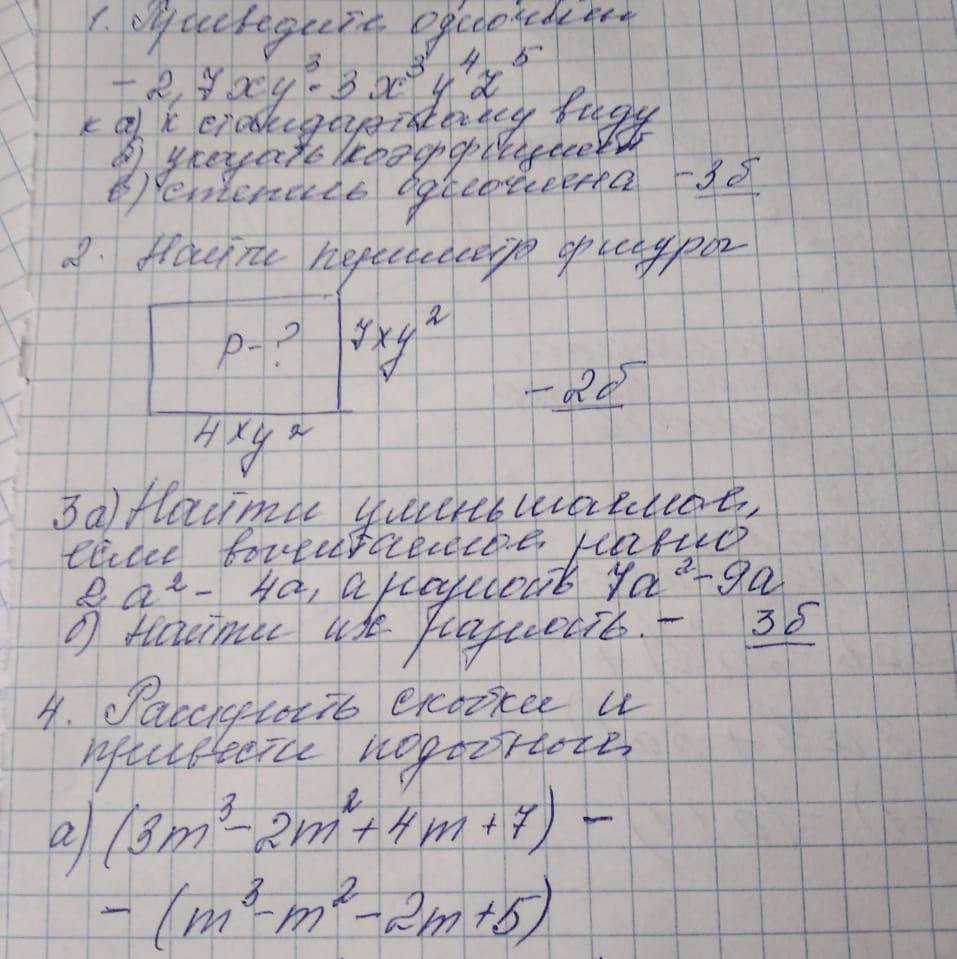 1. Приведите одночлен
- 2,7xy³ · 3x³y⁴z⁵
к а) к стандартному виду
б) указать коэффициент
в) степень одночлена - 3б
2. Найти периметр фигуры
P-? 7xy²
- 2б
4xy²
3а) Найти уменьшаемое,
если вычитаемое равно
2a² - 4a, а разность 7a² - 9a
б) Найти их разность. - 3б
4. Раскрыть скобки и
привести подобные
а) (3m³ - 2m² + 4m + 7) -
- (m³ - m² - 2m + 5)